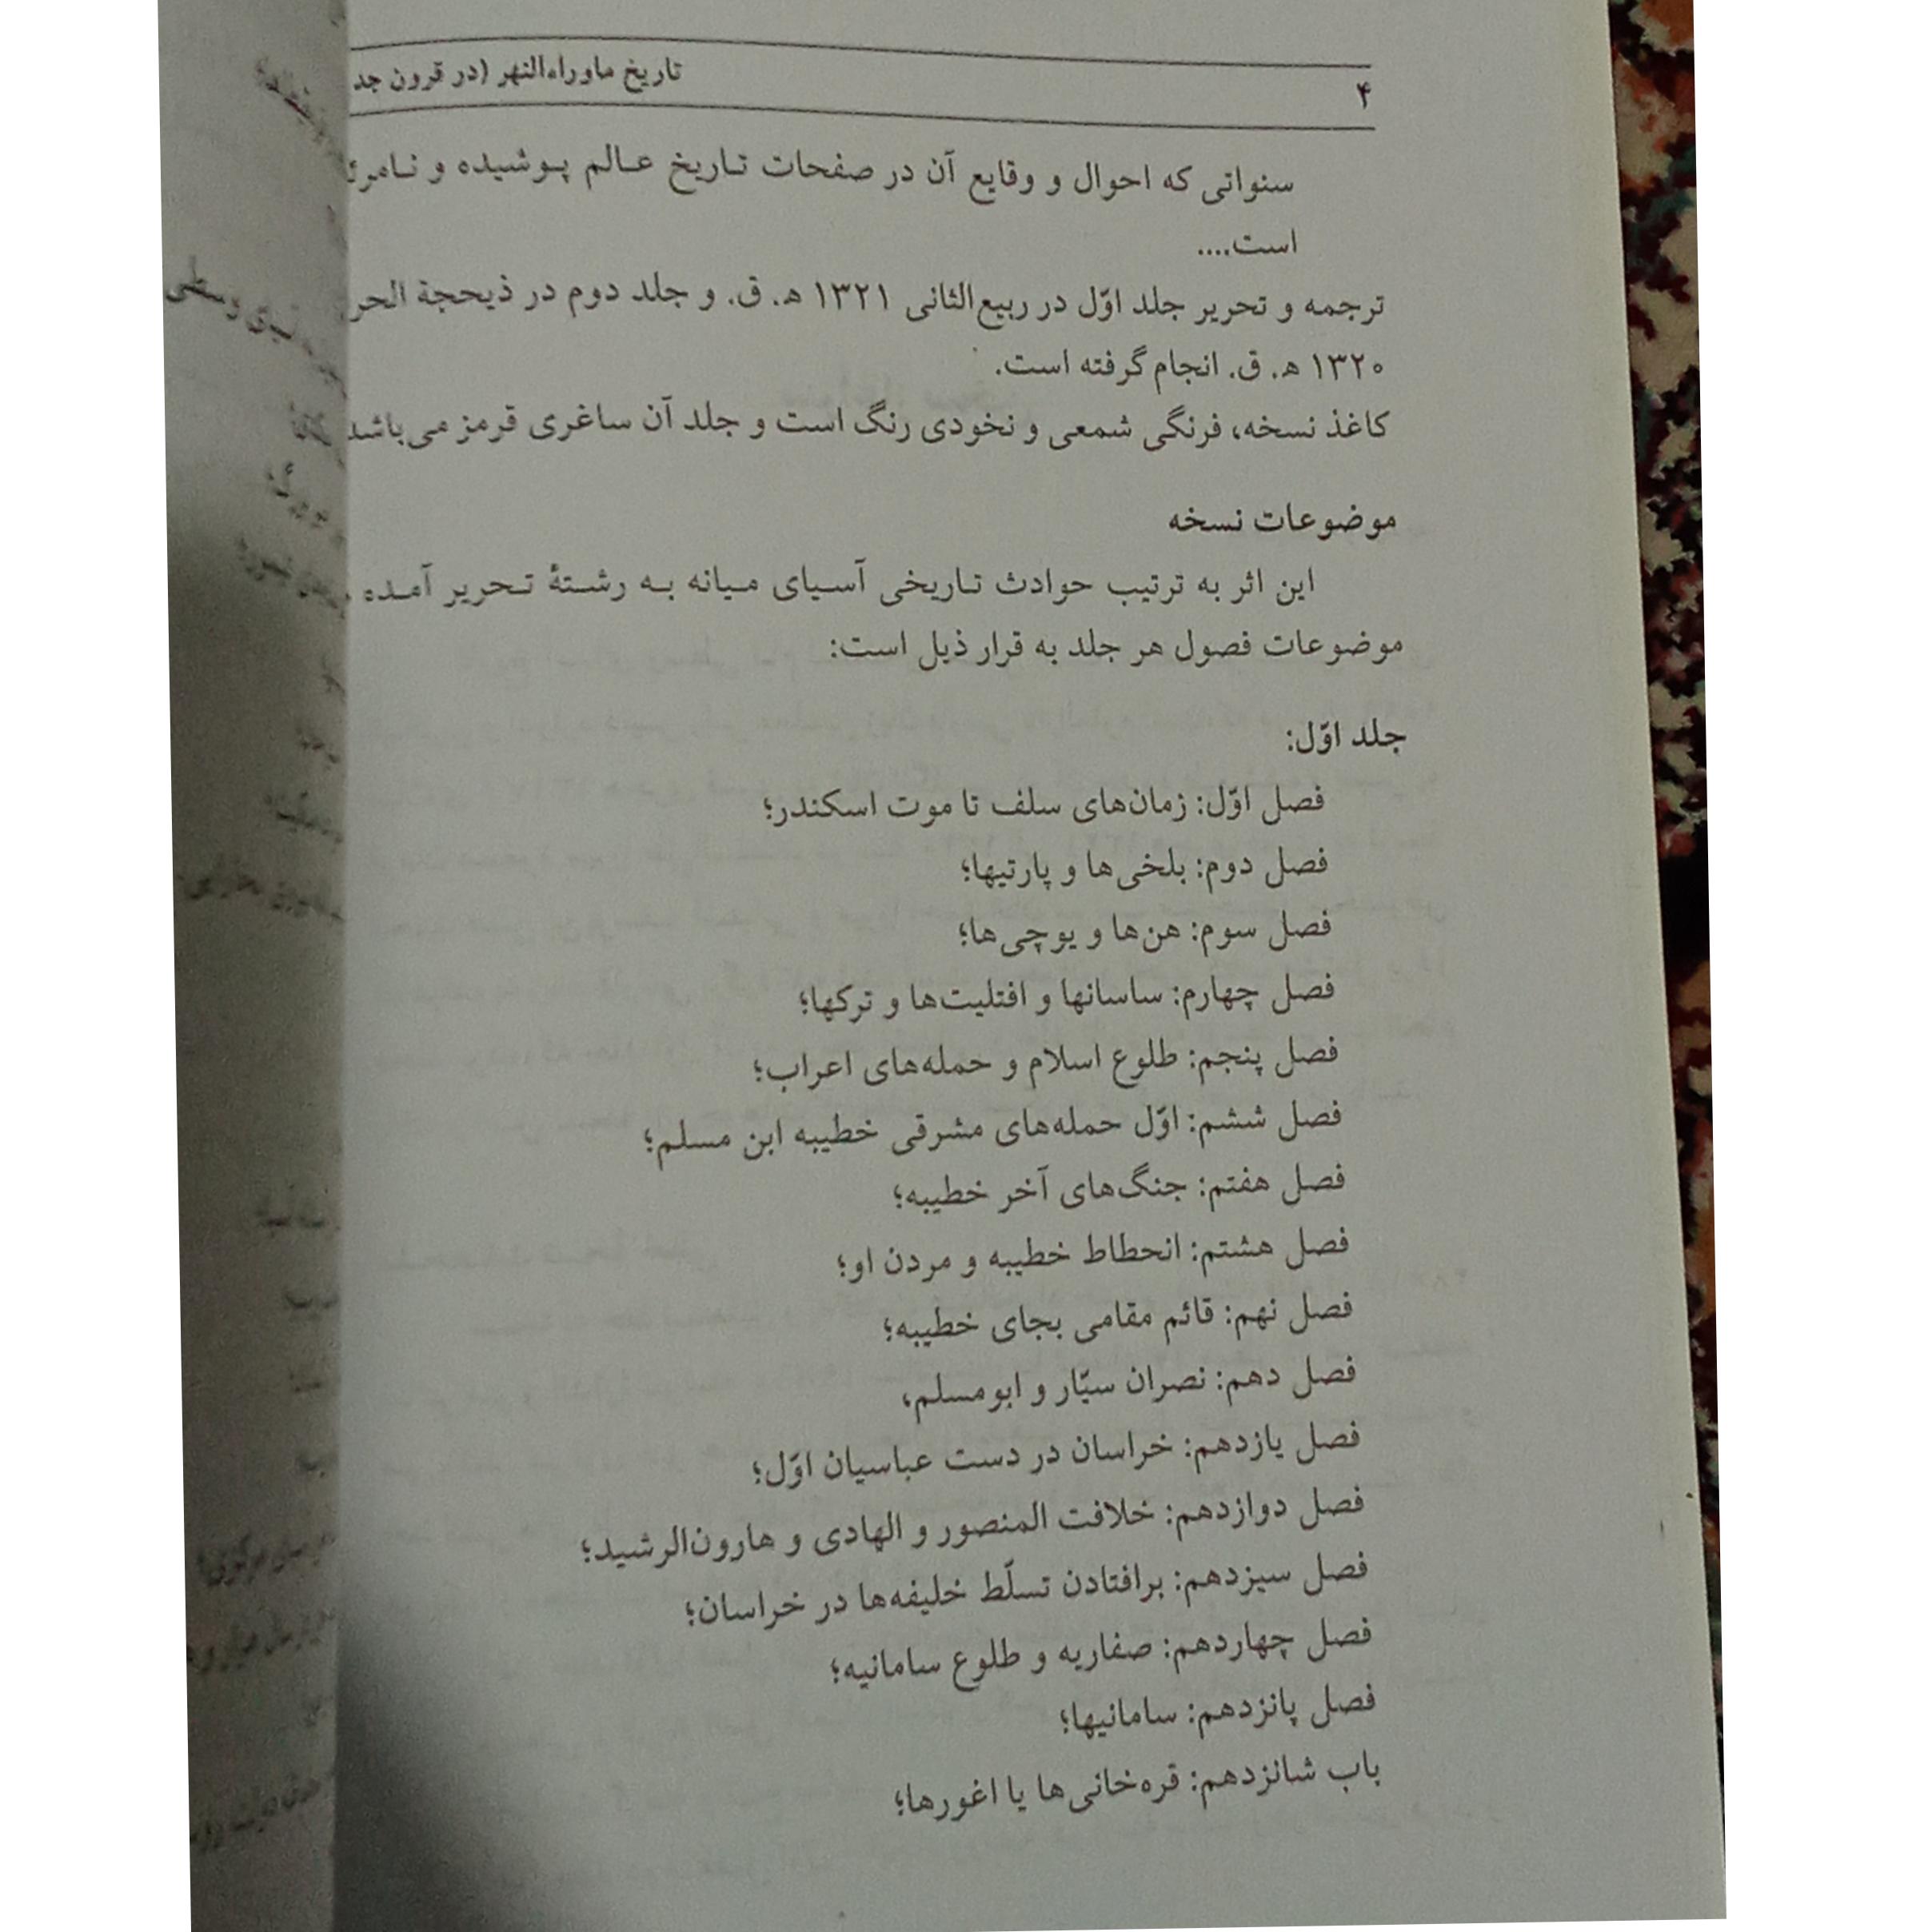 ۴
تاریخ ماوراءالنهر (در قرون جد
سنواتی که احوال و وقایع آن در صفحات تاریخ عالم پوشیده و نامرئ
است....
ترجمه و تحریر جلد اوّل در ربیع‌الثانی ۱۳۲۱ ه‍. ق. و جلد دوم در ذیحجة الحر
۱۳۲۰ ه‍. ق. انجام گرفته است.
کاغذ نسخه، فرنگی شمعی و نخودی رنگ است و جلد آن ساغری قرمز می‌باشد
موضوعات نسخه
این اثر به ترتیب حوادث تاریخی آسیای میانه به رشتهٔ تحریر آمده
موضوعات فصول هر جلد به قرار ذیل است:
جلد اوّل:
فصل اوّل: زمان‌های سلف تا موت اسکندر؛
فصل دوم: بلخی‌ها و پارتیها؛
فصل سوم: هن‌ها و یوچی‌ها؛
فصل چهارم: ساسانها و افتلیت‌ها و ترکها؛
فصل پنجم: طلوع اسلام و حمله‌های اعراب؛
فصل ششم: اوّل حمله‌های مشرقی خطیبه ابن مسلم؛
فصل هفتم: جنگ‌های آخر خطیبه؛
فصل هشتم: انحطاط خطیبه و مردن او؛
فصل نهم: قائم مقامی بجای خطیبه؛
فصل دهم: نصران سیّار و ابومسلم،
فصل یازدهم: خراسان در دست عباسیان اوّل؛
فصل دوازدهم: خلافت المنصور و الهادی و هارون‌الرشید؛
فصل سیزدهم: برافتادن تسلّط خلیفه‌ها در خراسان؛
فصل چهاردهم: صفاریه و طلوع سامانیه؛
فصل پانزدهم: سامانیها؛
باب شانزدهم: قره‌خانی‌ها یا اغورها؛